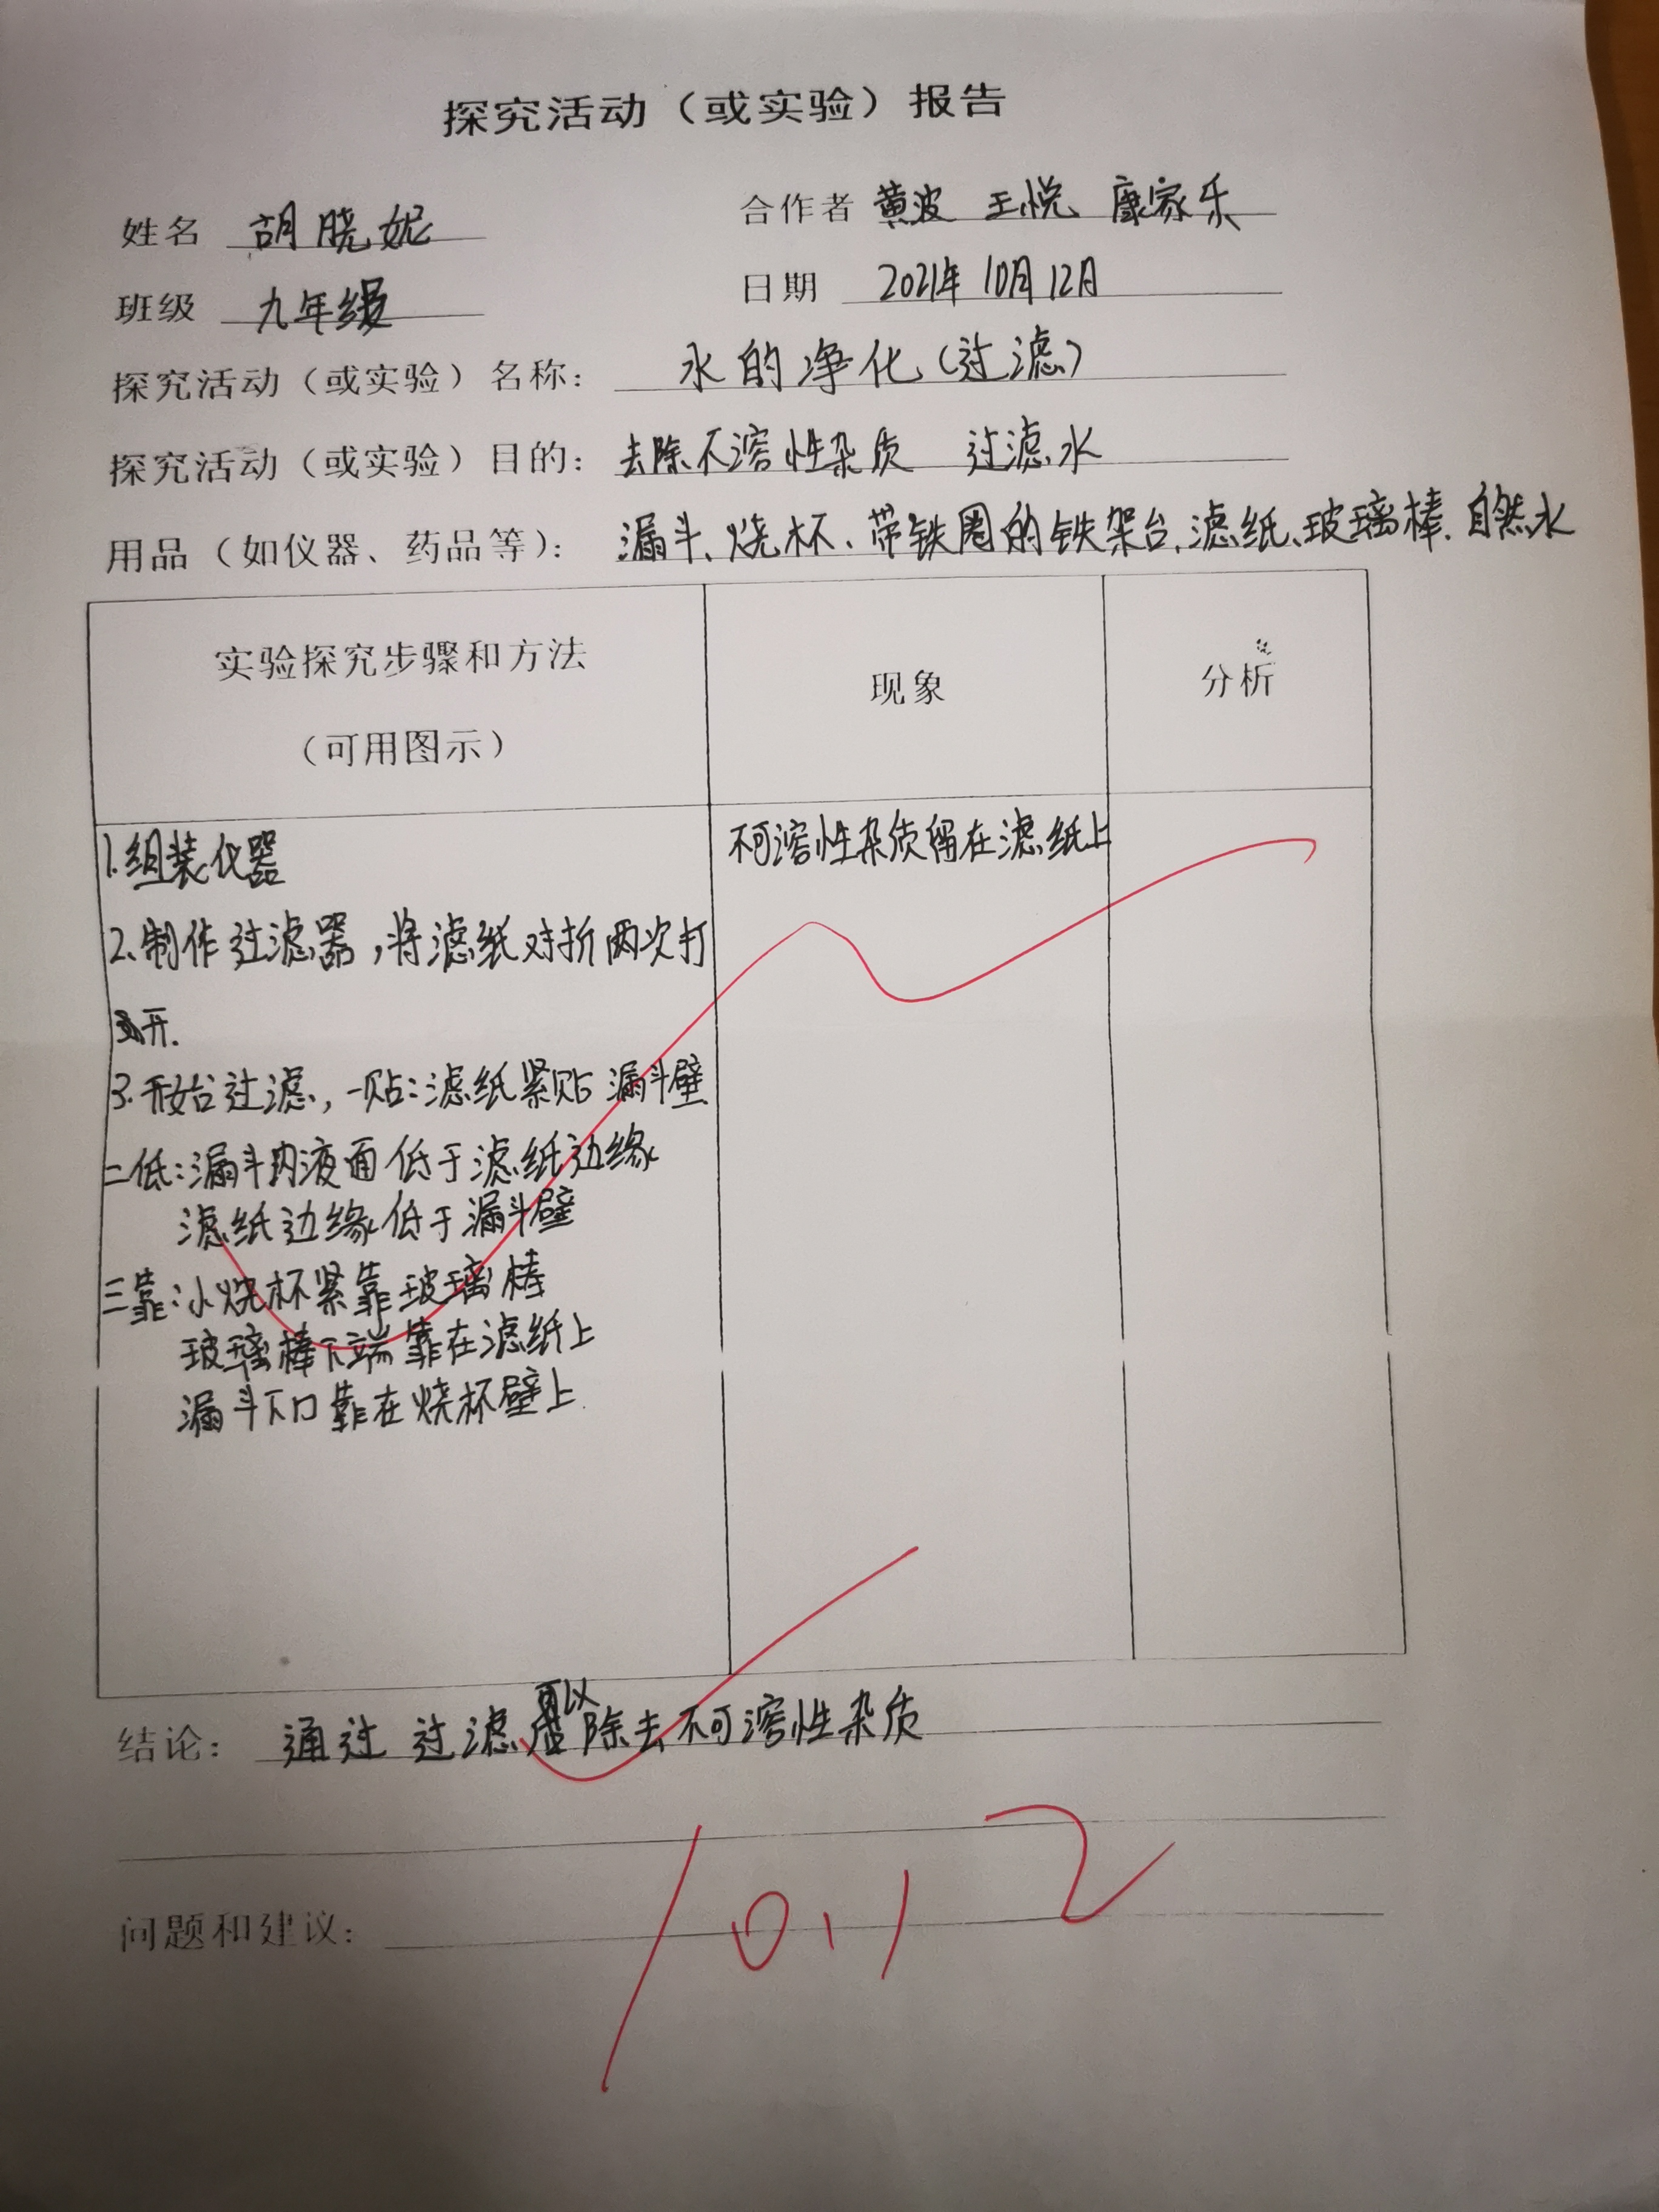 探究活动（或实验）报告
姓名 胡晓妮 合作者 黄波 王悦 康家乐
班级 九年级 日期 2021年10月12日
探究活动（或实验）名称：水的净化（过滤）
探究活动（或实验）目的：去除不溶性杂质 过滤水
用品（如仪器、药品等）：漏斗、烧杯、带铁圈的铁架台、滤纸、玻璃棒、自然水
实验探究步骤和方法
（可用图示）
现象
分析
1.组装仪器
2.制作过滤器，将滤纸对折两次打
开.
3.开始过滤，一贴：滤纸紧贴漏斗壁
二低：漏斗内液面低于滤纸边缘
滤纸边缘低于漏斗壁
三靠：小烧杯紧靠玻璃棒
玻璃棒下端靠在滤纸上
漏斗下口靠在烧杯壁上.
不可溶性杂质留在滤纸上
结论：通过过滤可以除去不可溶性杂质
问题和建议：
10.12